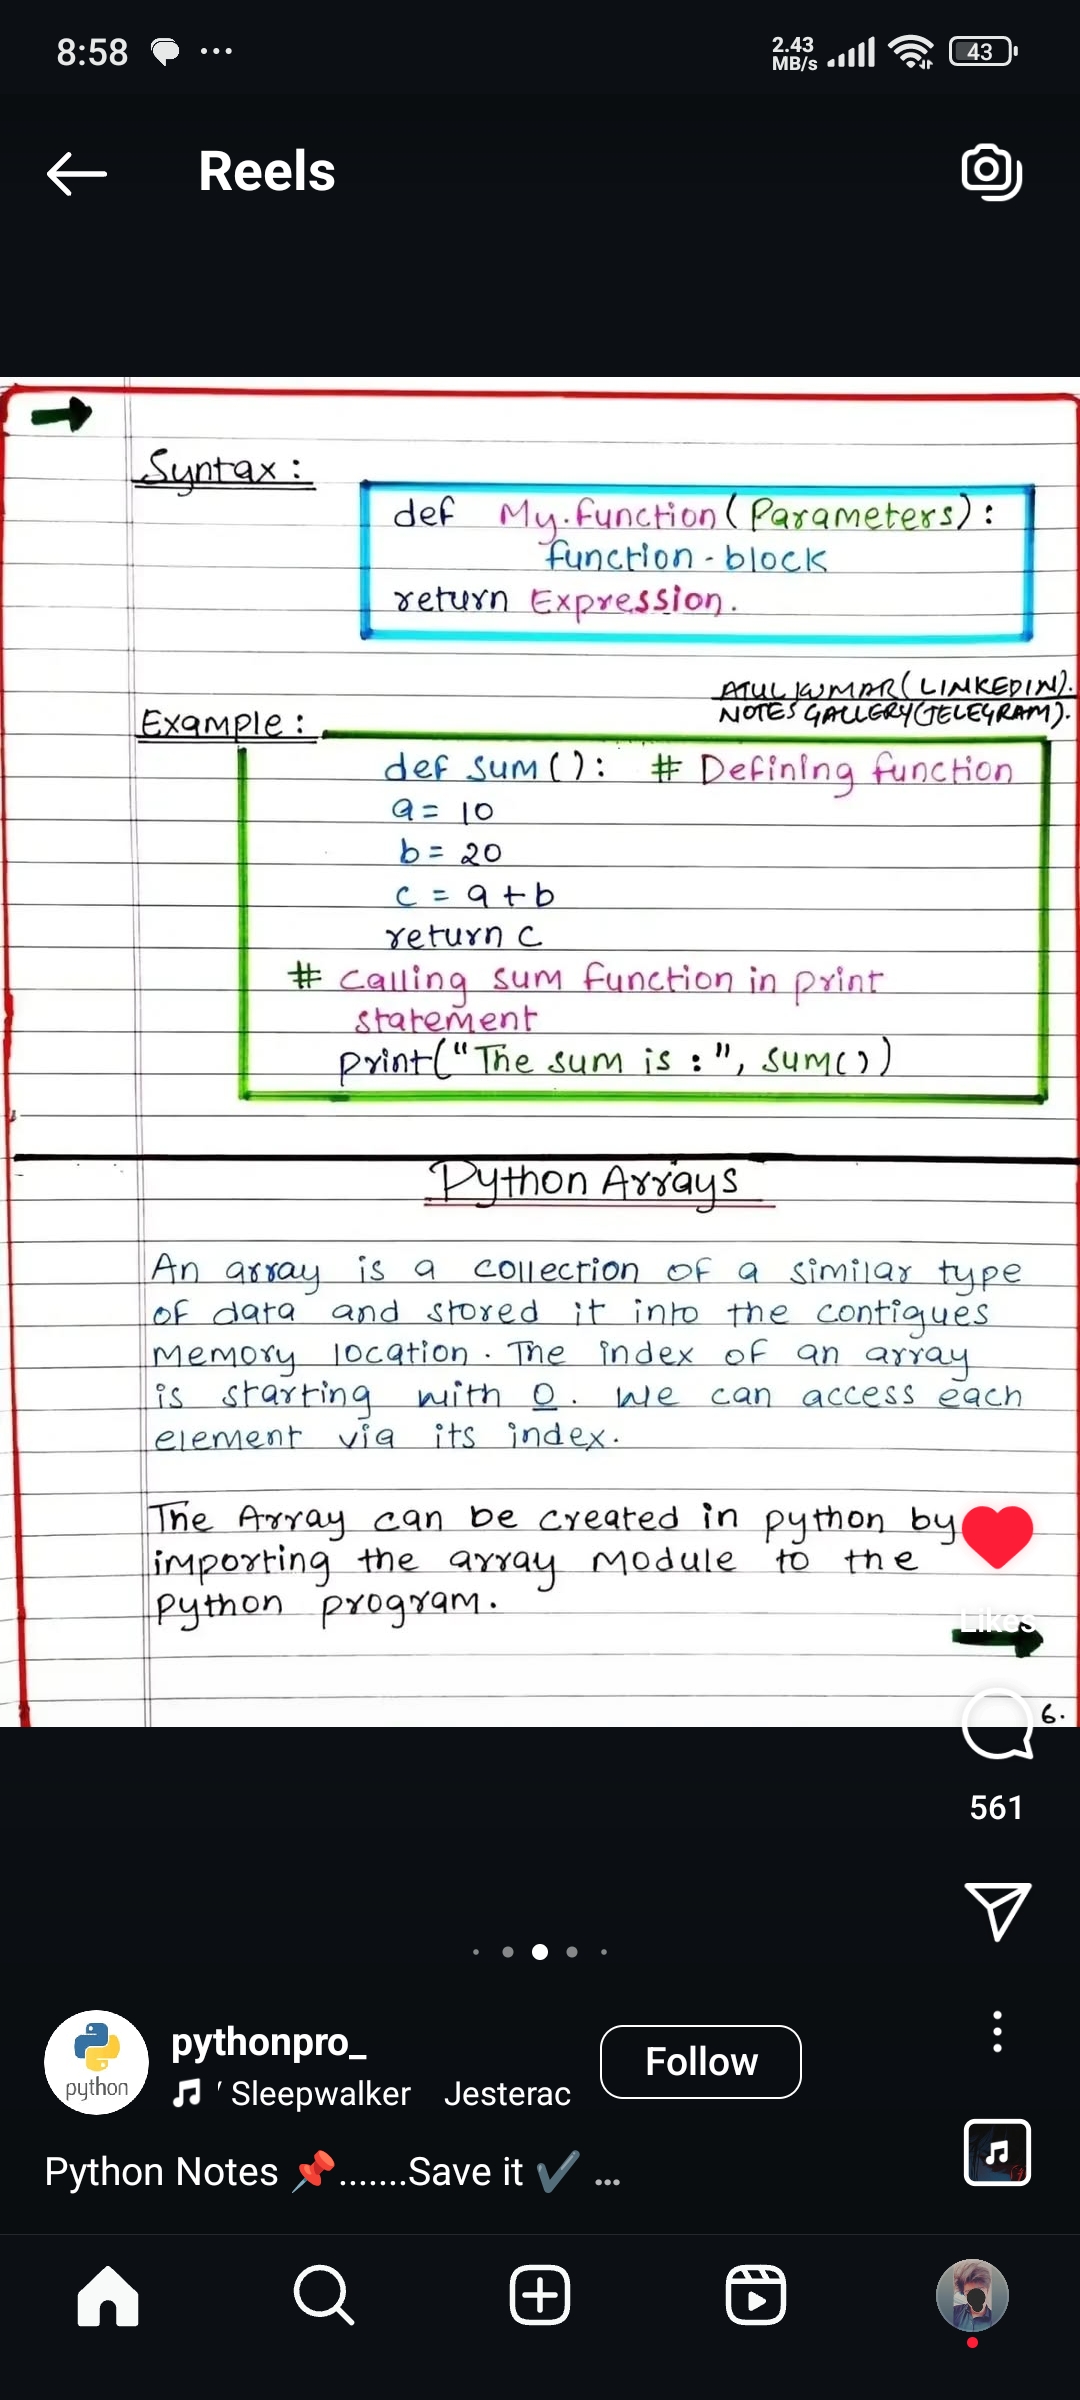 8:58
2.43
MB/s
43
Reels
Syntax :
def My.function (Parameters) :
function - block
return Expression.
ATUL KUMAR (LINKEDIN).
NOTES GALLERY (TELEGRAM).
Example :
def sum () : # Defining function
a = 10
b = 20
c = a + b
return c
# Calling sum function in print
statement
print("The sum is :", sum())
Python Arrays
An array is a collection of a similar type
of data and stored it into the contigues
memory location. The index of an array
is starting with 0. We can access each
element via its index.
The Array can be created in python by
importing the array module to the
Python program.
Likes
6.
561
python
pythonpro_
Follow
' Sleepwalker Jesterac
Python Notes 📌.......Save it ✔️ ...